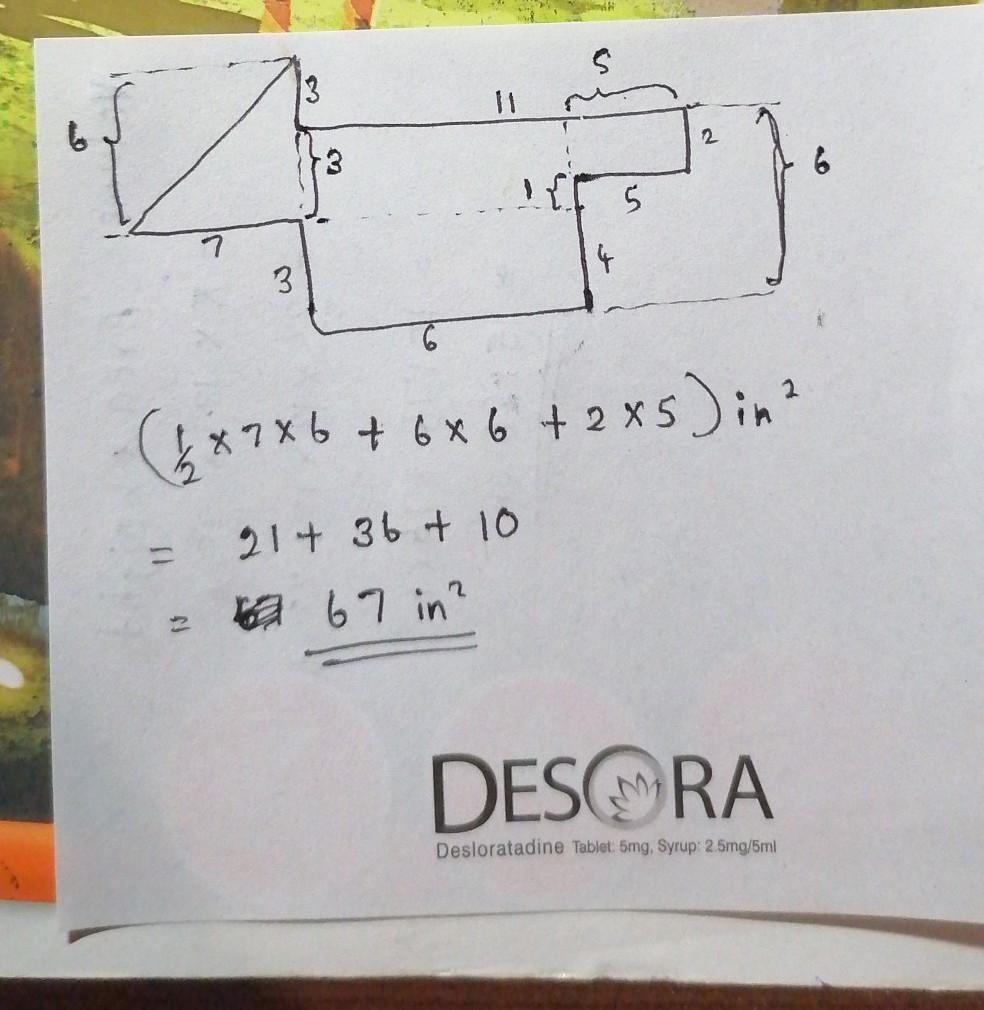 5
3
11
6
3
2
6
1
5
7
3
4
6
(1/2 × 7 × 6 + 6 × 6 + 2 × 5) in²
= 21 + 36 + 10
= 67 in²
DESORA
Desloratadine Tablet: 5mg, Syrup: 2.5mg/5ml